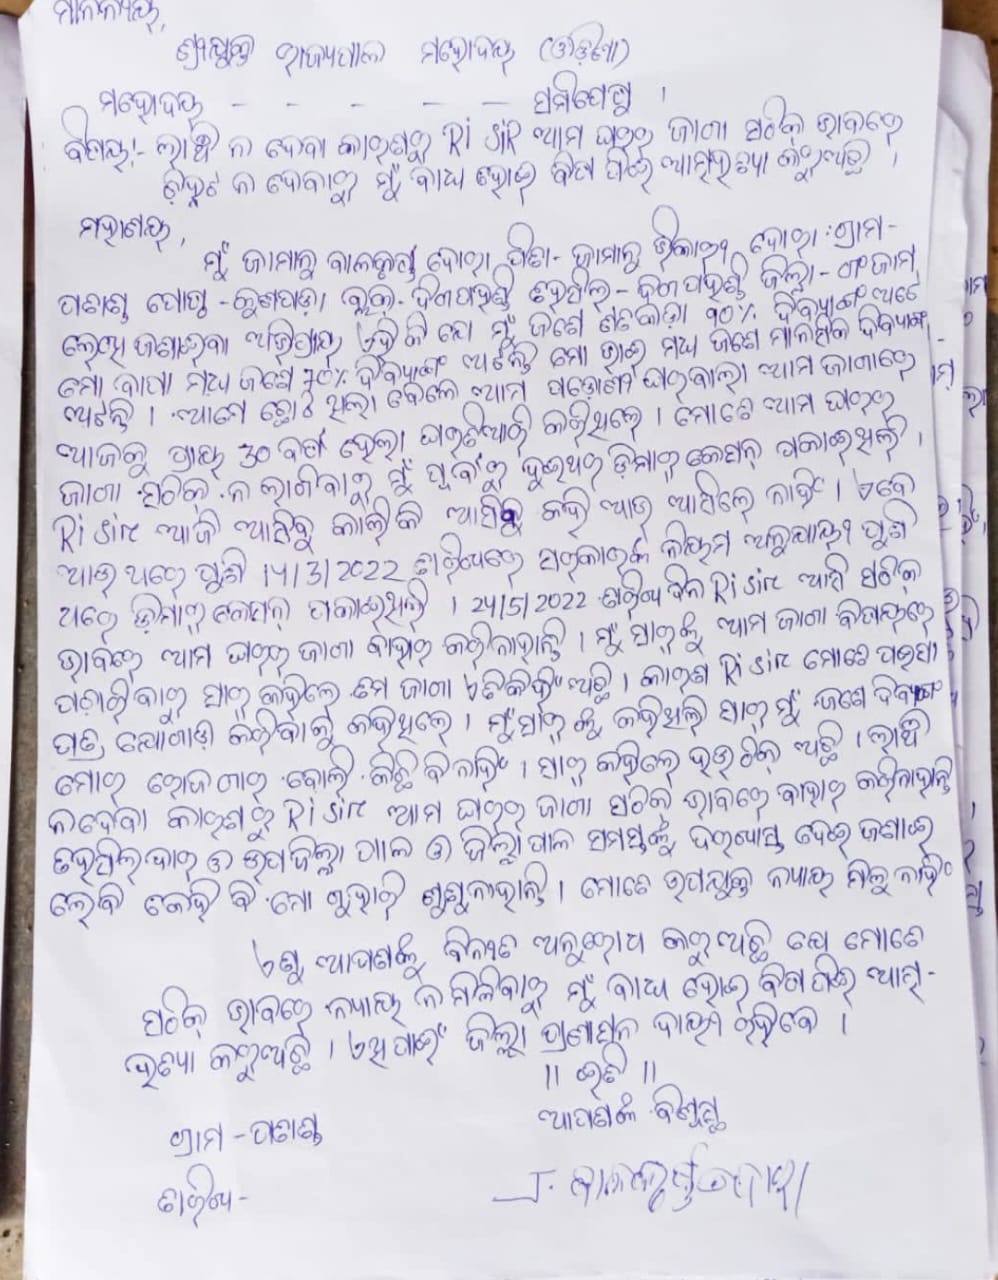 ମାନନୀୟ,
ଶ୍ରୀଯୁକ୍ତ ରାଜ୍ୟପାଳ ମହୋଦୟ (ଓଡ଼ିଶା)
ମହୋଦୟ - - - - - ସମୀପେଷୁ ।
ବିଷୟ:- ଲାଞ୍ଚ ନ ଦେବା କାରଣରୁ Ri SiR ଆମ ଘରର ଜାଗା ସଠିକ୍ ଭାବରେ
ଚିହ୍ନଟ ନ ଦେବାରୁ ମୁଁ ବାଧ୍ୟ ହୋଇ ବିଷ ପିଇ ଆତ୍ମହତ୍ୟା କରୁଅଛି ।
ମହାଶୟ,
ମୁଁ ଜାମାଳୁ ବାଳକୃଷ୍ଣ ଦୋରା ପିତା- ଜାମାଳୁ ଭିକାରୀ ଦୋରା ଗ୍ରାମ-
ପୋଷ୍ଟ - ବ୍ଲକ୍- ଦିଗପହଣ୍ଡି ତହସିଲ - ଦିଗପହଣ୍ଡି ଜିଲ୍ଲା - ଗଂଜାମ,
ଲେଖି ଜଣାଇବା ଅଭିପ୍ରାୟ ଏହି କି ଯେ ମୁଁ ଜଣେ ଶତକଡ଼ା ୭୦% ଦିବ୍ୟାଙ୍ଗ ଅଟେ
ମୋ ବାପା ମଧ୍ୟ ଜଣେ ୫୦% ଦିବ୍ୟାଙ୍ଗ ଅଟନ୍ତି ମୋ ଭାଇ ମଧ୍ୟ ଜଣେ ମାନସିକ ଦିବ୍ୟାଙ୍ଗ
ଅଟନ୍ତି । ଆମେ ଛୋଟ ଥିଲା ବେଳେ ଆମ ପଡ଼ୋଶୀ ଘରବାଲା ଆମ ଜାଗାରେ
ଆଜକୁ ପ୍ରାୟ ୩୦ ବର୍ଷ ହେଲା ଘରତିଆରି କରିଥିଲେ । ମୋତେ ଆମ ଘରର
ଜାଗା ସଠିକ୍ ନ ଲାଗିବାରୁ ମୁଁ ପୂର୍ବରୁ ଦୁଇଥର ଡ଼ିମାର୍ କେସନ୍ ପକାଇଥିଲି ।
Ri sir ଆଜି ଆସିବୁ କାଲିକି ଆସିବୁ କହି ଆଉ ଆସିଲେ ନାହିଁ । ଏବେ
ଆଉ ଥରେ ପୁଣି 14/3/2022 ତାରିଖରେ ସରକାରଙ୍କ ନିୟମ ଅନୁଯାୟୀ ପୁଣି
ଥରେ ଡ଼ିମାର୍ କେସନ୍ ପକାଇଥିଲି । 24/5/2022 ତାରିଖ ଦିନ Ri sir ଆସି ସଠିକ୍
ଭାବରେ ଆମ ଘରର ଜାଗା ବାହାର କରିନାହାନ୍ତି । ମୁଁ ସାର୍‌ଙ୍କୁ ଆମ ଜାଗା ବିଷୟରେ
ପଚାରିବାରୁ ସାର୍ କହିଲେ ତମ ଜାଗା ଏତିକିହିଁ ଅଛି । କାରଣ Ri sir ମୋତେ ପଇସା
ପତ୍ର କରିବାକୁ କହିଥିଲେ । ମୁଁ ସାର୍ ଙ୍କୁ କହିଥିଲି ସାର୍ ମୁଁ ଜଣେ ଦିବ୍ୟାଙ୍ଗ
ମୋର ରୋଜଗାର ବୋଲି କିଛି ବି ନାହିଁ । ସାର୍ କହିଲେ ହଉ ଠିକ୍ ଅଛି । ଲାଞ୍ଚ
ନଦେବା କାରଣରୁ Ri sir ଆମ ଘରର ଜାଗା ସଠିକ୍ ଭାବରେ ବାହାର କରିନାହାନ୍ତି
ତହସିଲଦାର ଓ ଉପଜିଲ୍ଲାପାଳ ଓ ଜିଲ୍ଲାପାଳ ସମସ୍ତଙ୍କୁ ଦରଖାସ୍ତ ଦେଇ ଜଣାଇ
ଲେବି କେହି ବି ମୋ ଗୁହାରି ଶୁଣୁନାହାନ୍ତି । ମୋତେ ଉପଯୁକ୍ତ ନ୍ୟାୟ ମିଳୁ ନାହିଁ
ଏଣୁ ଆପଣଙ୍କୁ ବିନୀତ ଅନୁରୋଧ କରୁଅଛି ଯେ ମୋତେ
ସଠିକ୍ ଭାବରେ ନ୍ୟାୟ ନ ମିଳିବାରୁ ମୁଁ ବାଧ୍ୟ ହୋଇ ବିଷ ପିଇ ଆତ୍ମ-
ହତ୍ୟା କରୁଅଛି । ଏଥିପାଇଁ ଜିଲ୍ଲା ପ୍ରଶାସନ ଦାୟୀ ରହିବେ ।
|| ଇତି ||
ଆପଣଙ୍କ ବିଶ୍ୱସ୍ତ
ଗ୍ରାମ -
ତାରିଖ -